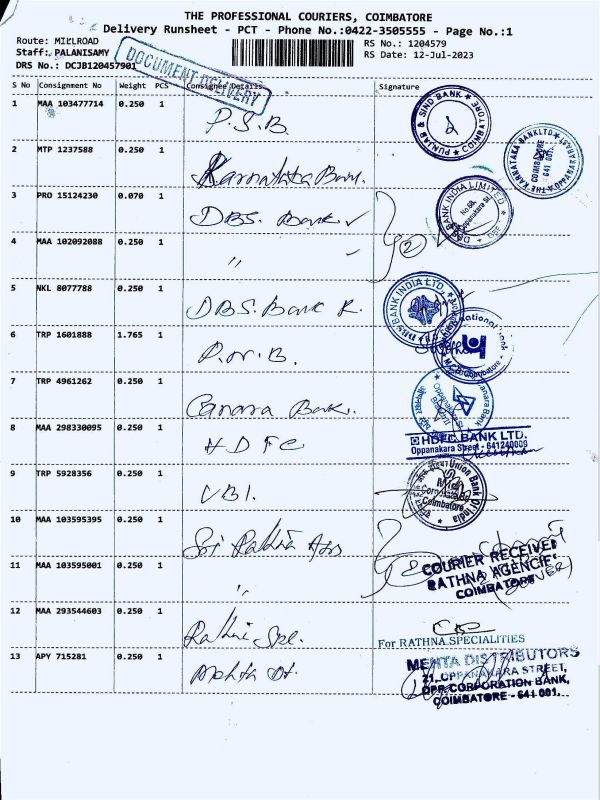 THE PROFESSIONAL COURIERS, COIMBATORE
Delivery Runsheet - PCT - Phone No.:0422-3505555 - Page No.:1
Route: MILLROAD
RS No.: 1204579
Staff: PALANISAMY
RS Date: 12-Jul-2023
DRS No.: DCJB120457901
DOCUMENT DELIVERY
S No Consignment No Weight PCS Consignee Details Signature
1 MAA 103477714 0.250 1 P.S.B. PUNJAB & SIND BANK COIMBATORE
2 MTP 1237588 0.250 1 Karnataka Bank. THE KARNATAKA BANK LTD COIMBATORE 641 001
3 PRO 15124230 0.070 1 DBS. Bank DBS BANK INDIA LIMITED Oppanakara St.
4 MAA 102092088 0.250 1 " 2
5 NKL 8077788 0.250 1 DBS. Bank R. DBS BANK INDIA LTD.
6 TRP 1601888 1.765 1 P.N.B. National Bank
7 TRP 4961262 0.250 1 Canara Bank. Canara Bank Oppanakara St
8 MAA 298330095 0.250 1 HDFC HDFC BANK LTD.
Oppanakara Street - 641240009
9 TRP 5928356 0.250 1 UBI. Union Bank Of India Mid Corporate Br Coimbatore
10 MAA 103595395 0.250 1 Sri Rathna
11 MAA 103595001 0.250 1 " COURIER RECEIVED
RATHNA AGENCIE
COIMBATORE
12 MAA 293544603 0.250 1 Rathna Spe. For RATHNA SPECIALITIES
13 APY 715281 0.250 1 Mehta Dt. MEHTA DISTRIBUTORS
21, OPPANAKARA STREET,
OPP. CORPORATION BANK,
COIMBATORE - 641 001.